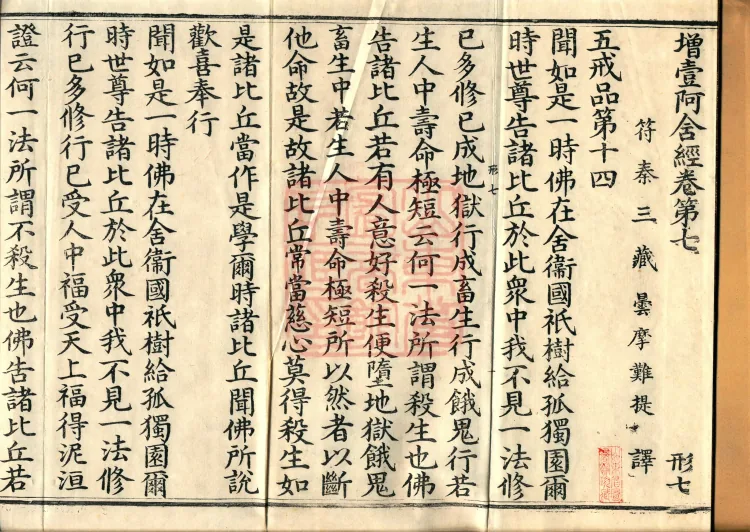 增壹阿含經卷第七 形七
符秦三藏曇摩難提譯
五戒品第十四
聞如是一時佛在舍衞國祇樹給孤獨園爾
時世尊告諸比丘於此衆中我不見一法修
形七
已多修已成地獄行成畜生行成餓鬼行若
生人中壽命極短云何一法所謂殺生也佛
告諸比丘若有人意好殺生便墮地獄餓鬼
畜生中若生人中壽命極短所以然者以斷
他命故是故諸比丘常當慈心莫得殺生如
是諸比丘當作是學爾時諸比丘聞佛所說
歡喜奉行
聞如是一時佛在舍衞國祇樹給孤獨園爾
時世尊告諸比丘於此衆中我不見一法修
行已多修行已受人中福受天上福得泥洹
證云何一法所謂不殺生也佛告諸比丘若